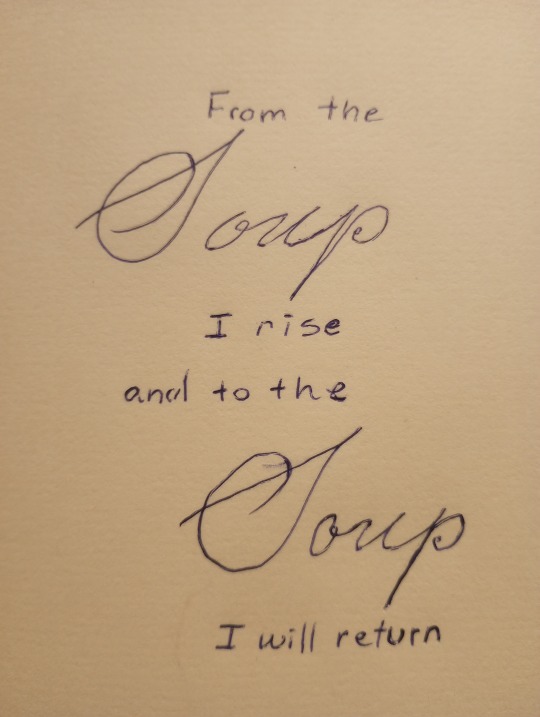 From the
Soup
I rise
and to the
Soup
I will return